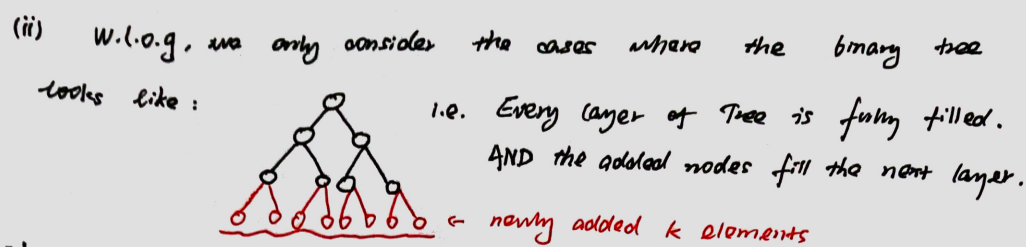 (ii) W.l.o.g, we only consider the cases where the binary tree
looks like :
i.e. Every layer of Tree is fully filled.
AND the added nodes fill the next layer.
← newly added k elements